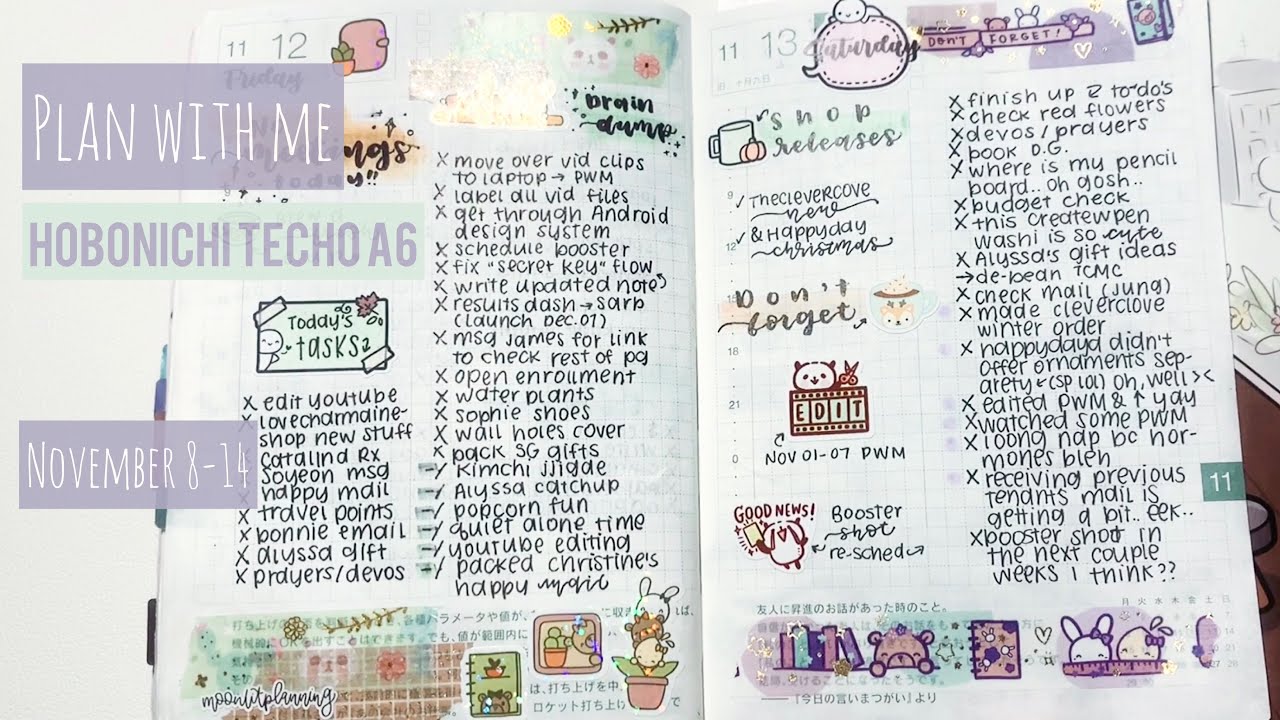 PLAN WITH ME
HOBONICHI TECHO A6
NOVEMBER 8-14
11 12
Friday
today!!
Today's
tasks
x edit youtube
x lovecharmaine-
shop new stuff
x catalina Rx
x soyeon msg
x happy mail
x travel points
x bonnie email
x alyssa gift
x prayers/devos
brain
dump
x move over vid clips
to laptop → PWM
x label all vid files
x get through Android
design system
x schedule booster
x fix "secret key" flow
x write updated note
x results dash → sarp
(launch Dec.01)
x msg james for link
to check rest of pg
x open enrollment
x water plants
x sophie shoes
x wall holes cover
x pack SG gifts
-/ kimchi jjigae
-/ Alyssa catchup
-/ popcorn fun
-/ quiet alone time
-/ youtube editing
-/ packed christine's
happy magic
moonlitplanning
11 13
Saturday
DON'T FORGET!
shop
releases
9
✓ TheCleverCove
new
12 ✓ & Happyday
christmas
Don't
forget
18
21
EDIT
0
NOV 01-07 PWM
GOOD NEWS!
Booster
shot
re-sched
x finish up 2 to-do's
x check red flowers
x devos/prayers
x book D.G.
x where is my pencil
board.. oh gosh..
x budget check
x this createwpen
washi is so cute
x Alyssa's gift ideas
→ de-pean TCMC
x check mail (jung)
x made cleverclove
winter order
x happydayd didn't
offer ornaments sep-
arety ← (SP LOL) oh, well ><
x edited PWM & ↑ yay
x watched some PWM
x loong nap bc hor-
mones bleh
x receiving previous
tenants mail is
getting a bit.. eek..
x booster shot in
the next couple
weeks I think??
11
友人に昇進のお話があった時のこと。
——『今日の言いまつがい』より
月 火 水 木 金 土 日